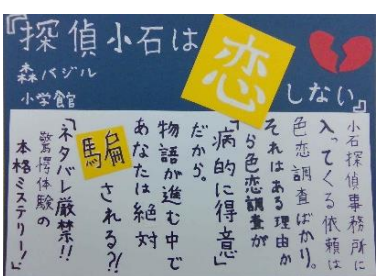 『探偵小石は
恋
しない』
森バジル
小学館
小石探偵事務所に
入ってくる依頼は
色恋調査ばかり。
それはある理由か
ら色恋調査が
「病的に得意」
だから。
物語が進む中で
あなたは絶対
騙される?!
「ネタバレ厳禁!!
驚愕体験の
本格ミステリー!」